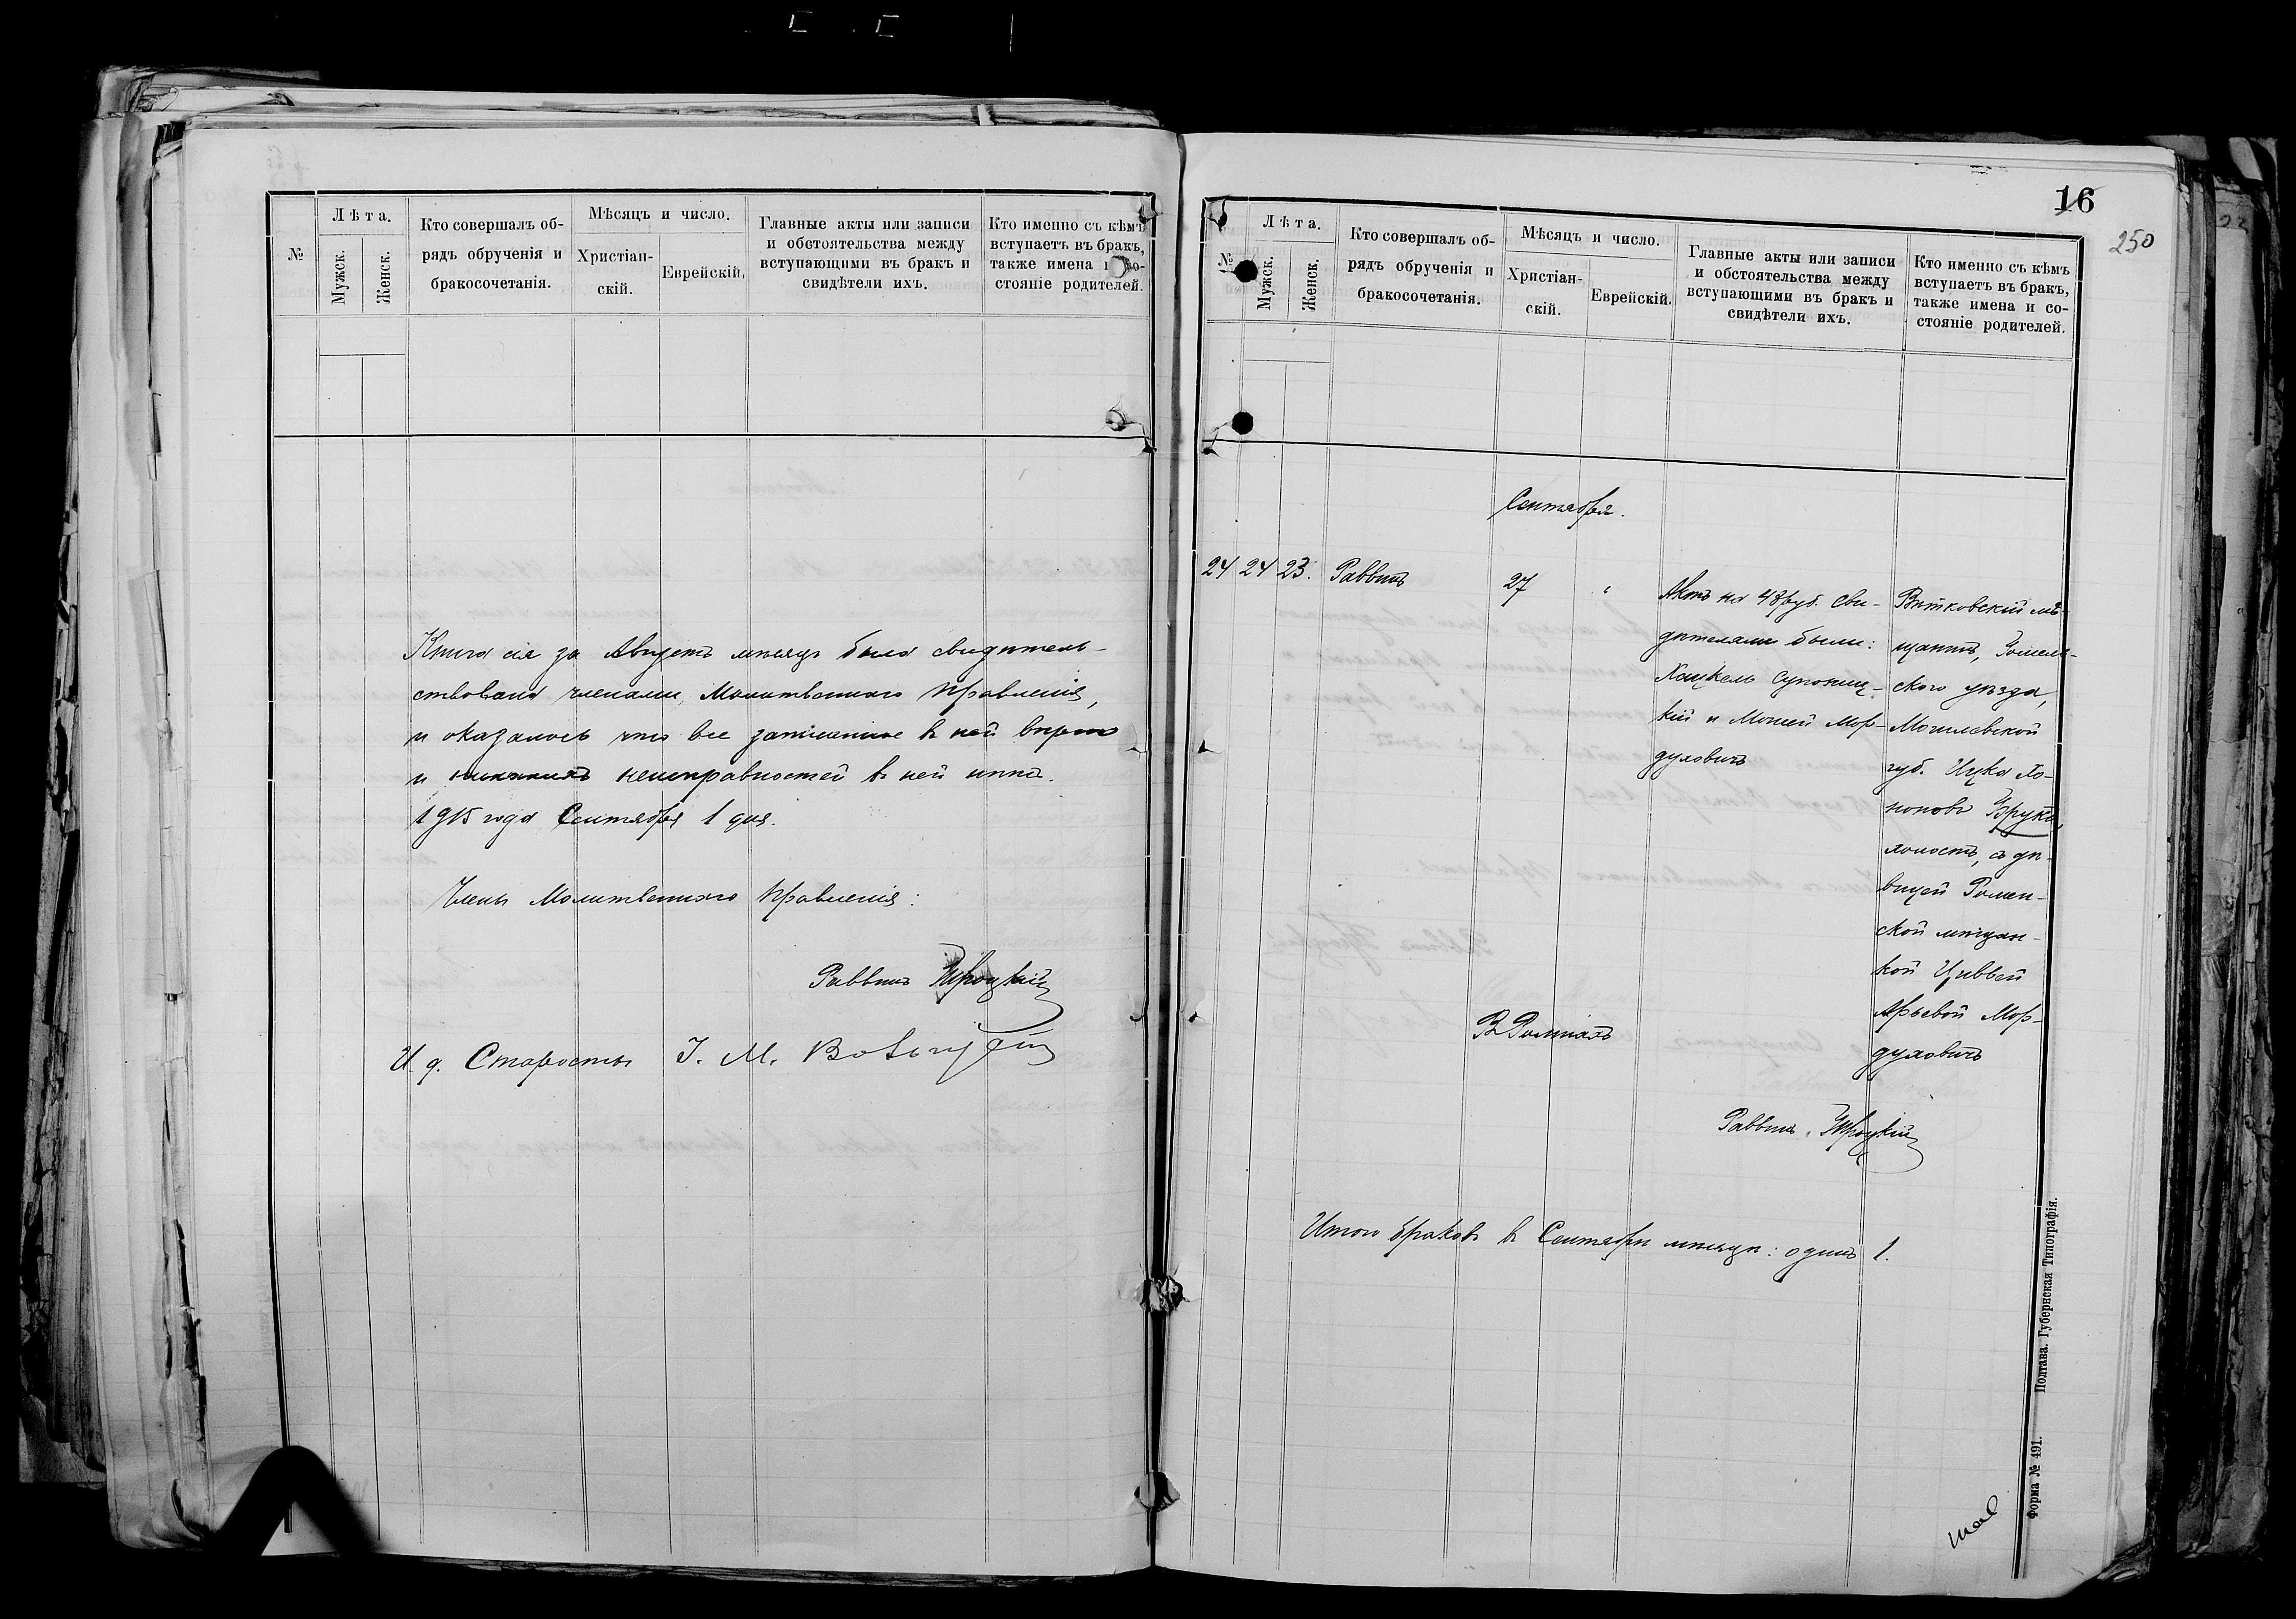 №
Лѣта.
Мужск.
Женск.
Кто совершалъ об-
рядъ обрученія и
бракосочетанія.
Мѣсяцъ и число.
Христіан-
скій.
Еврейскій.
Главные акты или записи
и обстоятельства между
вступающими въ бракъ и
свидѣтели ихъ.
Кто именно съ кѣмъ
вступаетъ въ бракъ,
также имена и со-
стояніе родителей.
Книга сія за Августъ мѣсяцъ была свидѣтель-
ствована членами Молитвеннаго Правленія,
и оказалось что все записанное въ ней вѣрно
и никакихъ неисправностей въ ней нѣтъ.
1915 года Сентября 1 дня.
Члены Молитвеннаго Правленія:
Раввинъ Троцкій
И. д. Старосты І. М.
16
250
№
Лѣта.
Мужск.
Женск.
Кто совершалъ об-
рядъ обрученія и
бракосочетанія.
Мѣсяцъ и число.
Христіан-
скій.
Еврейскій.
Главные акты или записи
и обстоятельства между
вступающими въ бракъ и
свидѣтели ихъ.
Кто именно съ кѣмъ
вступаетъ въ бракъ,
также имена и со-
стояніе родителей.
Сентября.
24 24 23. Раввинъ 27 "
Актъ на 48 руб. Сви-
дѣтелями были:
Хацкель Супониц-
кій и Мошей Мор-
духовичъ
Вѣтковскій мѣ-
щанинъ, Гомель-
скаго уѣзда,
Могилевской
губ. Ицка Хо-
ноновъ Брукъ,
холостъ, съ дѣ-
вицей Ромен-
ской мѣщан-
кой Цивьей
Арьевой Мор-
духовичъ
Въ Ромнахъ
Раввинъ Троцкій
Итого браковъ въ Сентябрѣ мѣсяцѣ: одинъ 1.
Форма № 491. Полтава. Губернская Типографія.